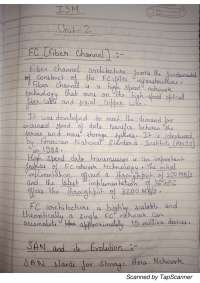 ISM
Unit-2
FC [Fiber Channel] :-
Fiber Channel architecture forms the fundamental
of construct of the FC SAN infrastructure.
Fiber Channel is a high speed network
technology that runs on the high speed optical
fiber cable and serial copper wire.
It was developed to meet the demand for
increased speed of data transfer between the
server and mass storage systems. It is introduced
by American National Standards Institute (ANSI)
in 1988.
High speed data transmission is an important
feature of FC network technology. The initial
implementation offered a throughput of 200 MB/s
and the latest implementation of 16 GFC
offers the throughput of 3200 MB/s.
FC architecture is highly scalable and
theoretically a single FC network can
accomodate approximately 15 million devices.
SAN and its Evolution :-
SAN stands for Storage Area Network
Scanned by TapScanner